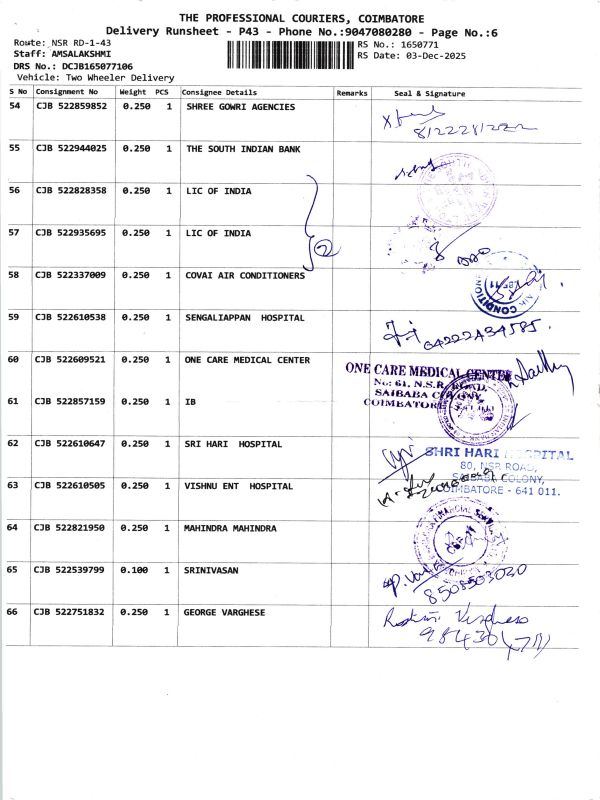 THE PROFESSIONAL COURIERS, COIMBATORE
Delivery Runsheet - P43 - Phone No.:9047080280 - Page No.:6
Route: NSR RD-1-43
RS No.: 1650771
Staff: AMSALAKSHMI
RS Date: 03-Dec-2025
DRS No.: DCJB165077106
Vehicle: Two Wheeler Delivery
S No Consignment No Weight PCS Consignee Details Remarks Seal & Signature
54 CJB 522859852 0.250 1 SHREE GOWRI AGENCIES
55 CJB 522944025 0.250 1 THE SOUTH INDIAN BANK
56 CJB 522828358 0.250 1 LIC OF INDIA
57 CJB 522935695 0.250 1 LIC OF INDIA
2
58 CJB 522337009 0.250 1 COVAI AIR CONDITIONERS
59 CJB 522610538 0.250 1 SENGALIAPPAN HOSPITAL
04222434585.
60 CJB 522609521 0.250 1 ONE CARE MEDICAL CENTER
ONE CARE MEDICAL CENTER
No: 61, N.S.R. ROAD,
SAIBABA COLONY,
COIMBATORE
61 CJB 522857159 0.250 1 IB
62 CJB 522610647 0.250 1 SRI HARI HOSPITAL
SHRI HARI HOSPITAL
80, NSR ROAD,
SAIBABA COLONY,
COIMBATORE - 641 011.
63 CJB 522610505 0.250 1 VISHNU ENT HOSPITAL
64 CJB 522821950 0.250 1 MAHINDRA MAHINDRA
65 CJB 522539799 0.100 1 SRINIVASAN
8508503020
66 CJB 522751832 0.250 1 GEORGE VARGHESE